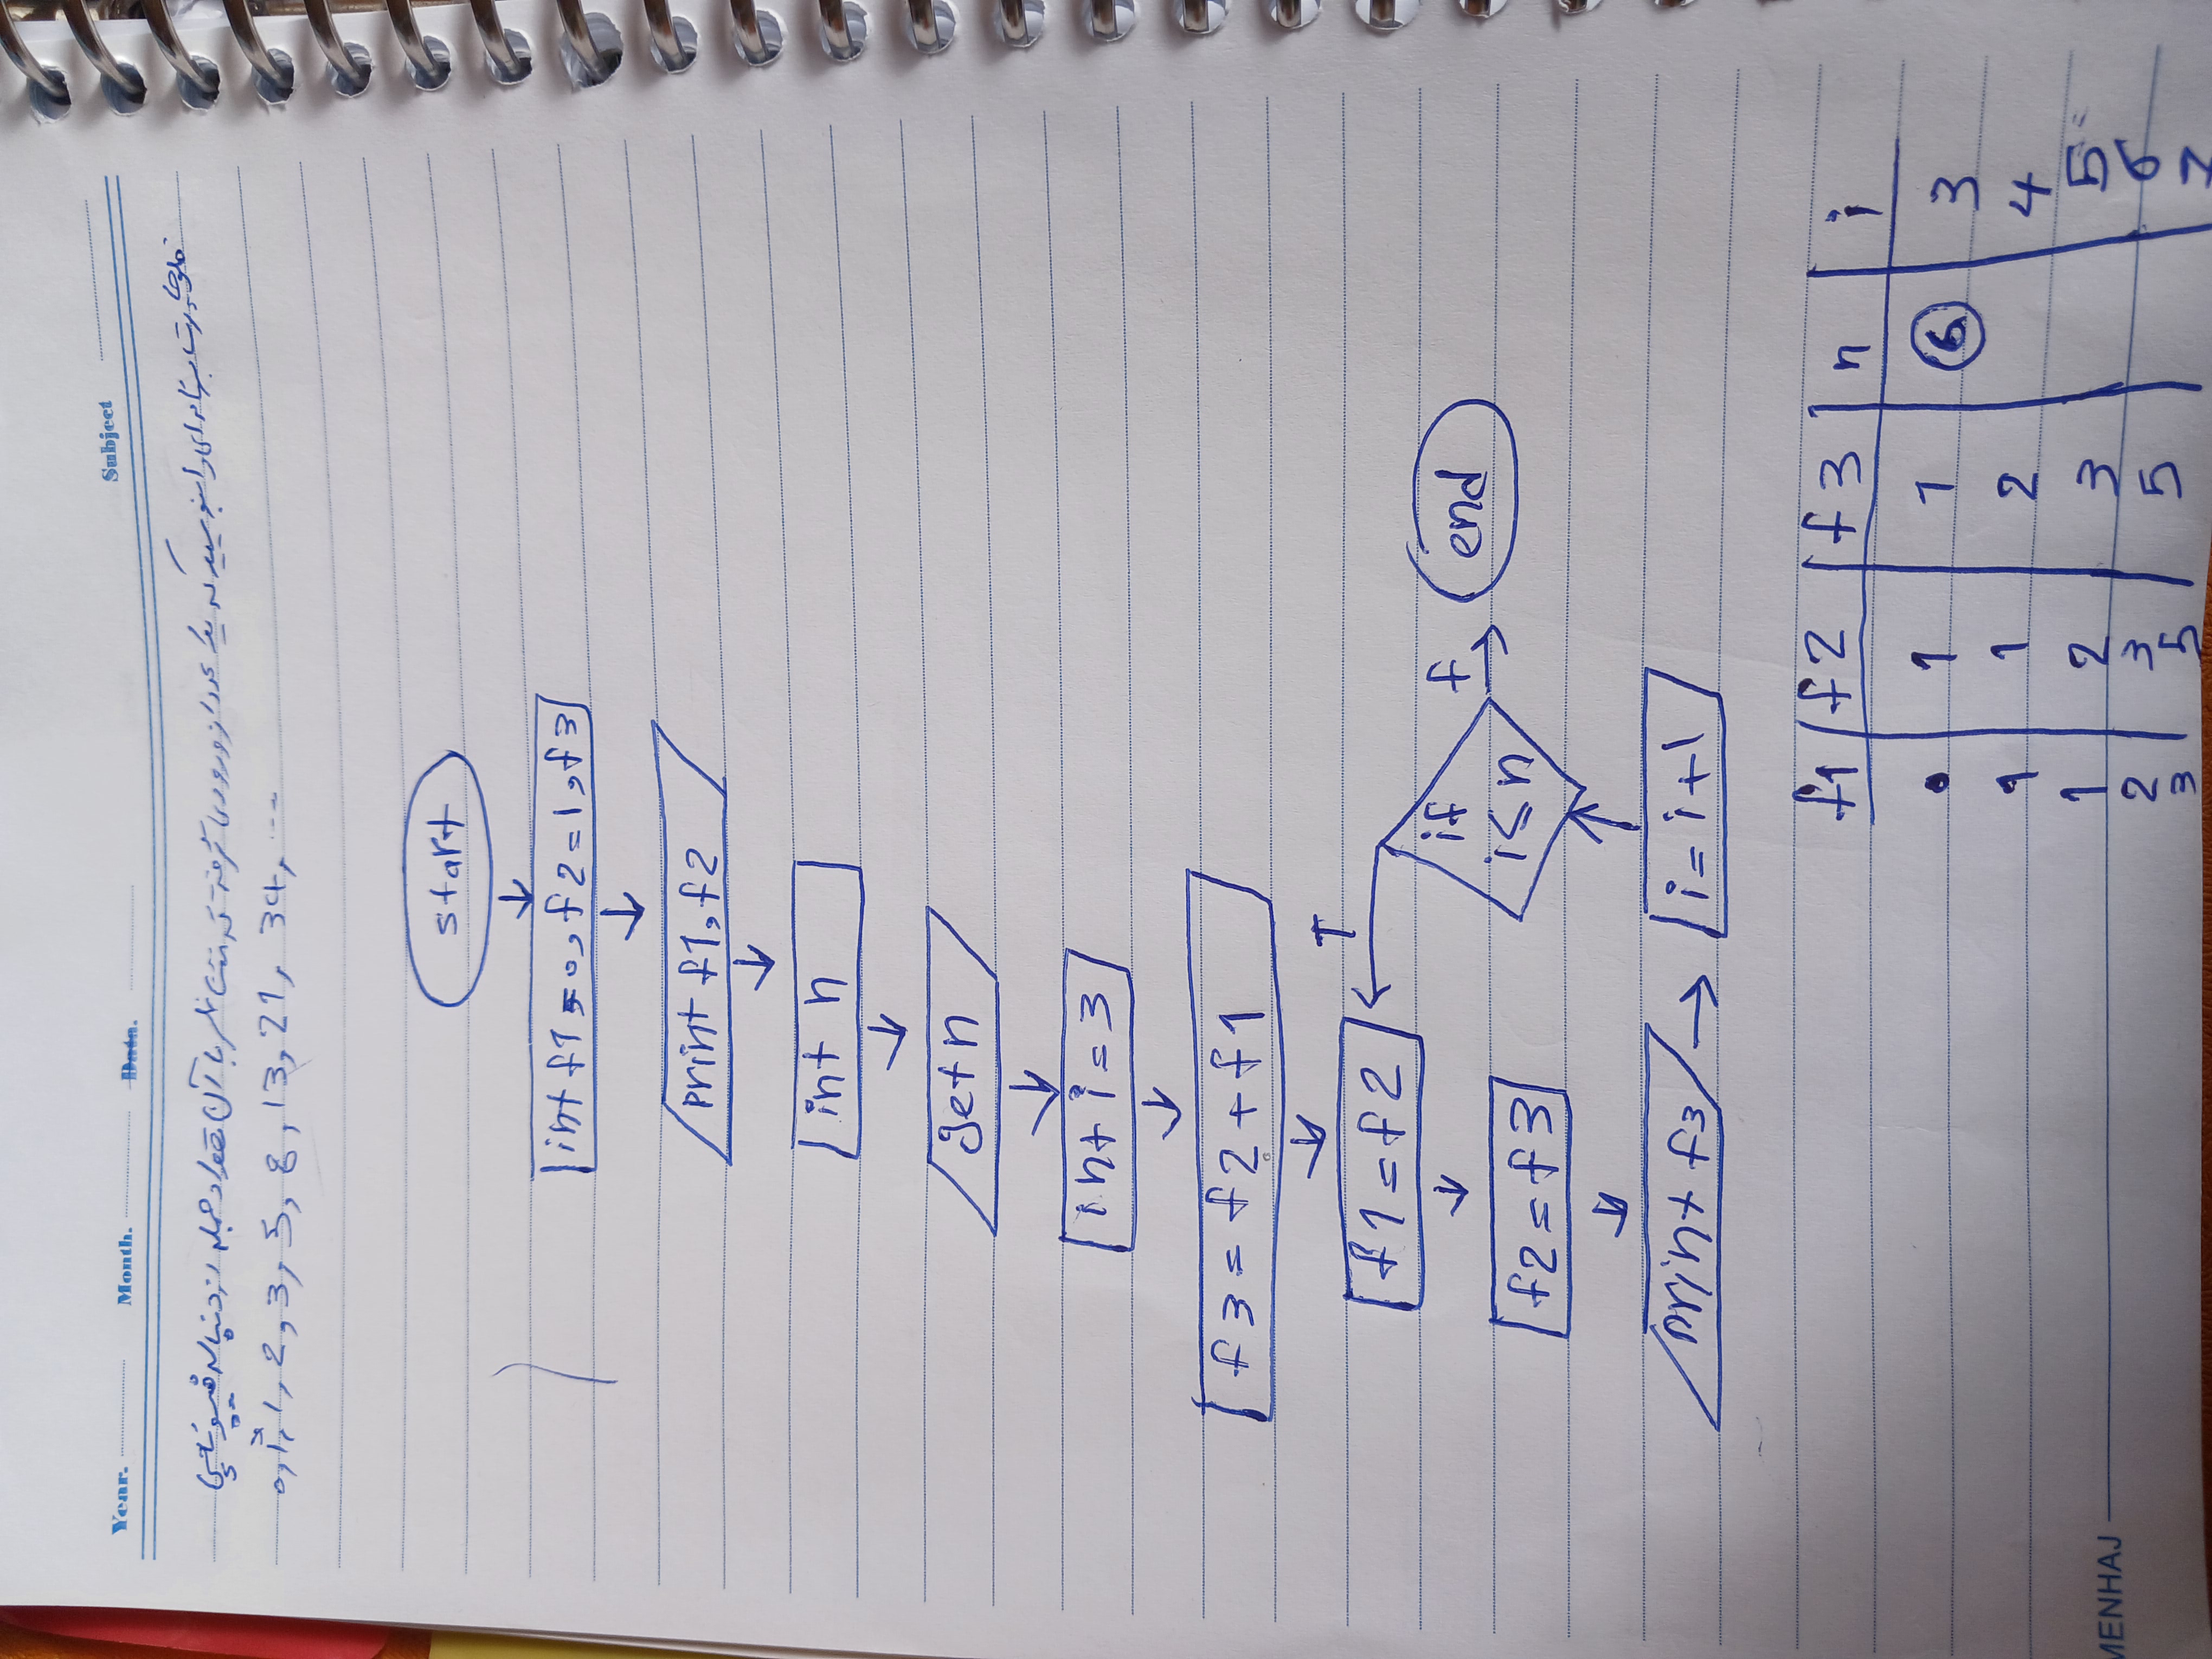 Year. Month. Data. Subject
فلوچارت برنامه ای را بنویسید که یک عدد از ورودی گرفته که متناظر با آن تعداد جمله از دنباله فیبوناچی
0, 1, 1, 2, 3, 5, 8, 13, 21, 34, ...
start
int f1=0, f2=1, f3
print f1, f2
int n
get n
int i=3
f3=f2+f1
T
f1=f2
if
i≤n
f
end
f2=f3
print f3
i=i+1
f1 f2 f3 n i
0 1 1 6 3
1 1 2 4
1 2 3 5
2 3 5 6
3 5 7
MENHAJ